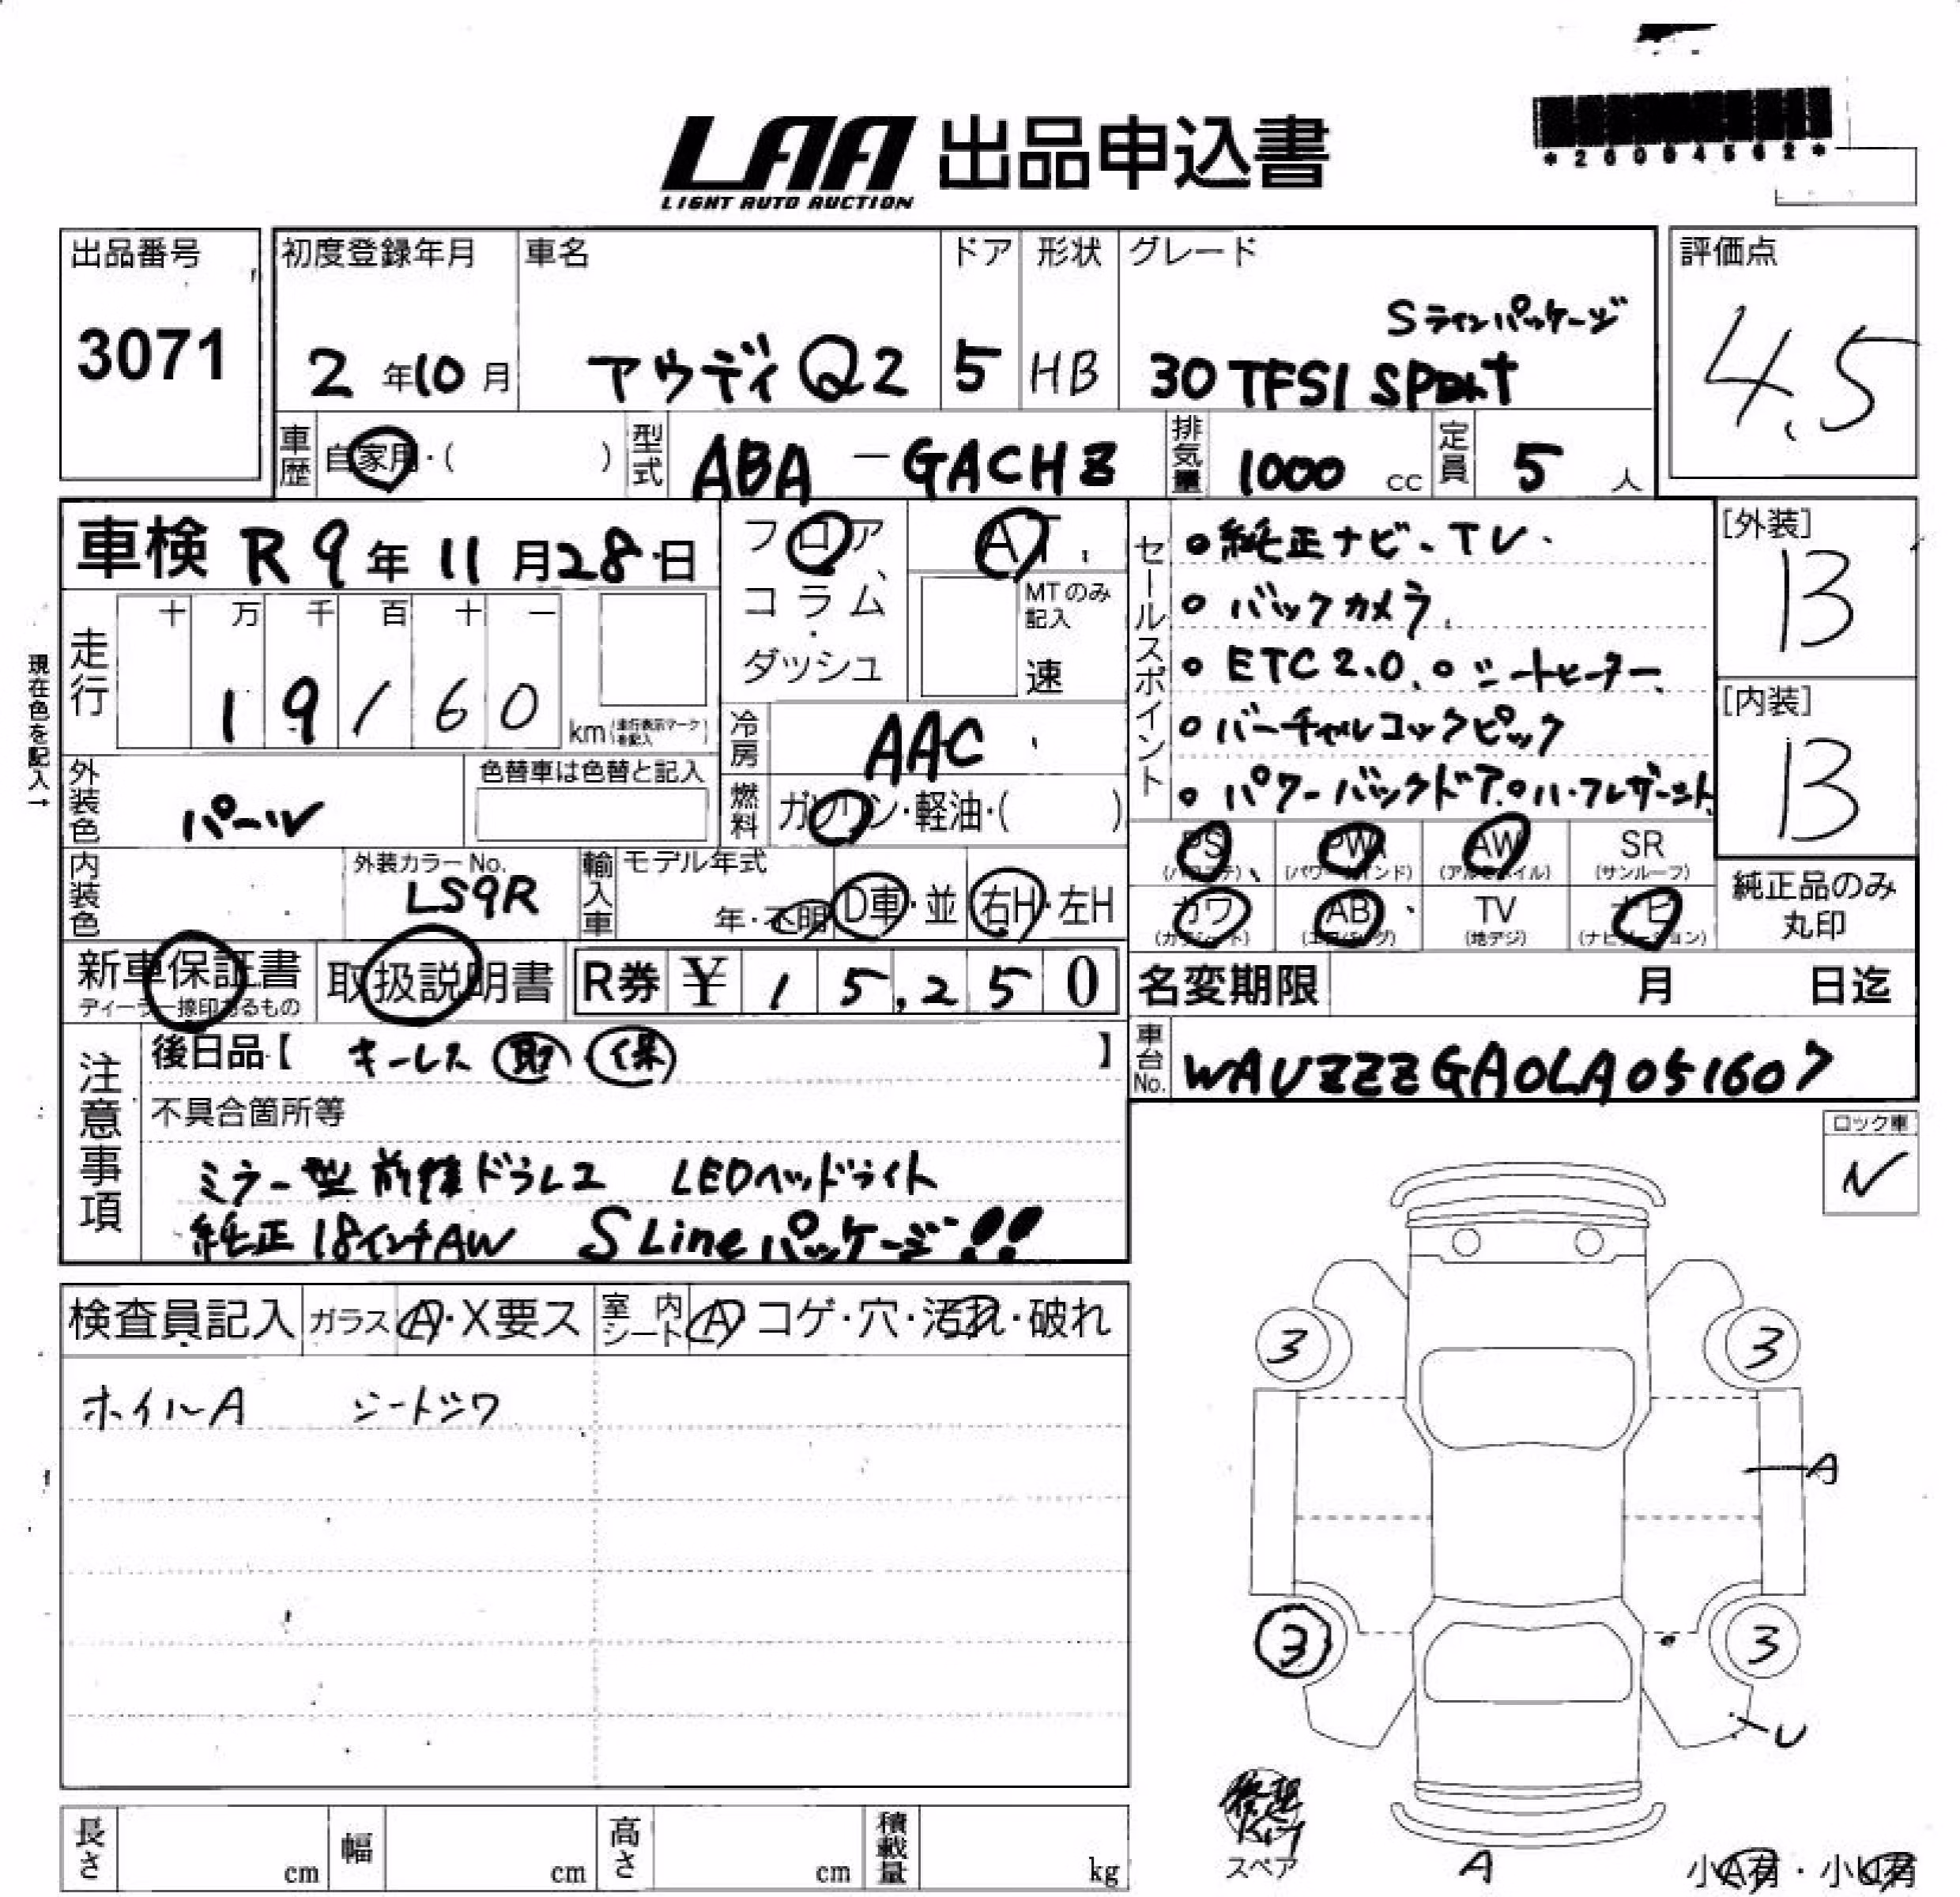 LAA 出品申込書
LIGHT AUTO AUCTION
*26094562*
出品番号
3071
初度登録年月
2年10月
車名
アウディ Q2
ドア
5
形状
HB
グレード
Sラインパッケージ
30 TFSI SPORT
評価点
4.5
車歴 自家用・( )
型式 ABA-GACHZ
排気量 1000 cc
定員 5 人
車検 R9年11月28日
フロア
コラム
・
ダッシュ
AT
MTのみ記入
速
セールスポイント
純正ナビ、TV
バックカメラ
ETC2.0 シートヒーター
バーチャルコックピット
パワーバックドア ハーフレザーシート
[外装]
B
[内装]
B
現在色を記入→
走行
十 万 千 百 十 一
1 9 1 6 0
km(走行表示マークを記入)
冷房 AAC
燃料 ガソリン・軽油・( )
外装色 パール
色替車は色替と記入
内装色
外装カラーNo.
LS9R
輸入車
モデル年式
年・不明
D車・並
右H・左H
PS (パワステ)
PW (パワーウインド)
AW (アルミホイル)
SR (サンルーフ)
カワ (カワシート)
AB (エアバッグ)
TV (地デジ)
ナビ (ナビゲーション)
純正品のみ
丸印
新車保証書
ディーラー捺印あるもの
取扱説明書
R券 ¥ 15,250
名変期限 月 日迄
車台No. WAUZZZGA0LA051607
注意事項
後日品【 キーレス 取 保 】
不具合箇所等
ミラー型前後ドラレコ LEDヘッドライト
純正18インチAW S Lineパッケージ!!
ロック車
検査員記入 ガラス A・X要ス 室内シート A コゲ・穴・汚れ・破れ
ホイルA シートシワ
3 3
A
3 3
U
スペア
A
小A有・小U有
長さ cm
幅 cm
高さ cm
積載量 kg